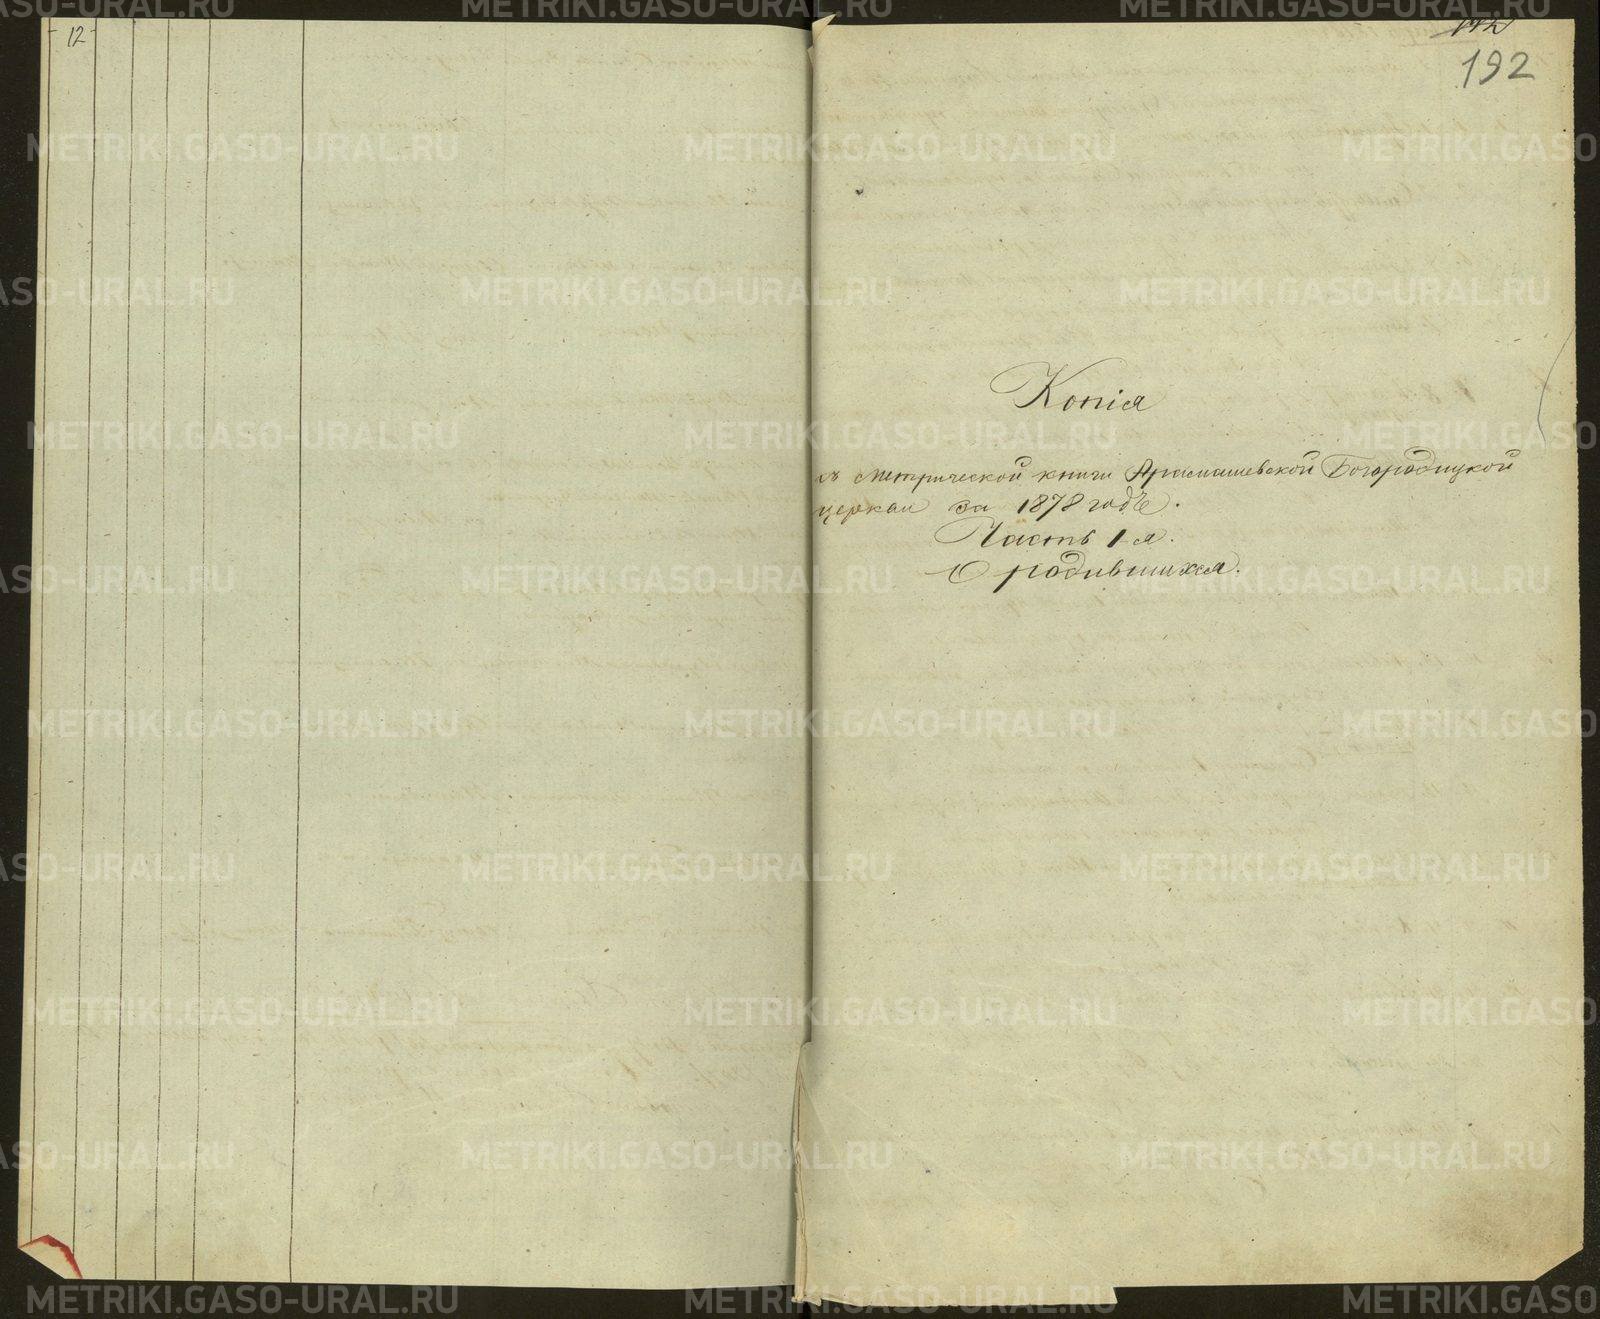 12
192
Копія
съ метрической книги Арамашевской Богородицкой
церкви за 1878 годъ.
Часть 1-я.
О родившихся.
METRIKI.GASO-URAL.RU